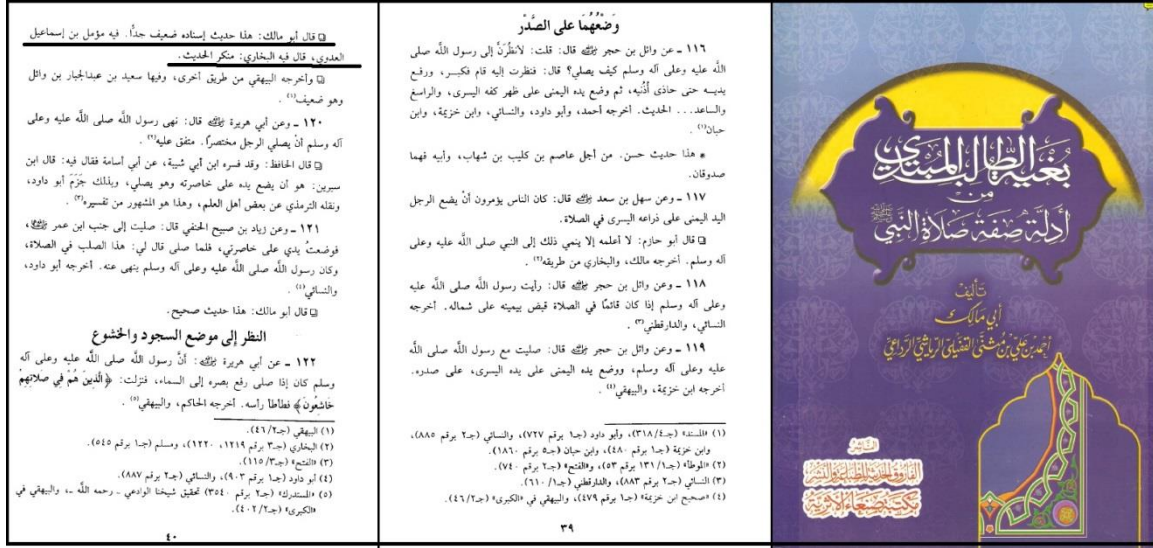 بغية الطالب المبتدي
من
أدلة صفة صلاة النبي ﷺ
تأليف
أبي مالك
أحمد بن علي بن مثنى القفيلي الرياشي الرداعي
الناشر
الفاروق الحديثة للطباعة والنشر
مكتبة صنعاء الأثرية
وَضْعُهُمَا على الصَّدْر
١١٦ ـ عن وائل بن حجر رضي الله عنه قال: قلت: لأنظُرَنَّ إلى رسول اللَّه صلى
اللَّه عليه وعلى آله وسلم كيف يصلي؟ قال: فنظرت إليه قام فكبر، ورفع
يديه حتى حاذى أُذُنيه، ثم وضع يده اليمنى على ظهر كفه اليسرى، والرسغ
والساعد... الحديث. أخرجه أحمد، وأبو داود، والنسائي، وابن خزيمة، وابن
حبان(١).
* هذا حديث حسن. من أجل عاصم بن كليب بن شهاب، وأبيه فهما
صدوقان.
١١٧ ـ وعن سهل بن سعد رضي الله عنه قال: كان الناس يؤمرون أنْ يضع الرجل
اليد اليمنى على ذراعه اليسرى في الصلاة.
قال أبو حازم: لا أعلمه إلا ينمي ذلك إلى النبي صلى اللَّه عليه وعلى
آله وسلم. أخرجه مالك، والبخاري من طريقه(٢).
١١٨ ـ وعن وائل بن حجر رضي الله عنه قال: رأيت رسول اللَّه صلى اللَّه عليه
وعلى آله وسلم إذا كان قائمًا في الصلاة قبض بيمينه على شماله. أخرجه
النسائي، والدارقطني(٣).
١١٩ ـ وعن وائل بن حجر رضي الله عنه قال: صليت مع رسول اللَّه صلى اللَّه
عليه وعلى آله وسلم، ووضع يده اليمنى على يده اليسرى، على صدره.
أخرجه ابن خزيمة، والبيهقي(٤).
(١) «المسند» (جـ٣١٨/٤)، وأبو داود (جـ١ برقم ٧٢٧)، والنسائي (جـ٢ برقم ٨٨٥)،
وابن خزيمة (جـ١ برقم ٤٨٠)، وابن حبان (جـ٥ برقم ١٨٦٠).
(٢) «الموطأ» (جـ١٣١/١ برقم ٥٣)، و«الفتح» (جـ٢ برقم ٧٤٠).
(٣) النسائي (جـ٢ برقم ٨٨٣)، والدارقطني (جـ٦١٠/١).
(٤) «صحيح ابن خزيمة» (جـ١ برقم ٤٧٩)، والبيهقي في «الكبرى» (جـ٤٦/٢).
٣٩
قال أبو مالك: هذا حديث إسناده ضعيف جدًّا. فيه مؤمل بن إسماعيل
العدوي، قال فيه البخاري: منكر الحديث.
وأخرجه البيهقي من طريق أخرى، وفيها سعيد بن عبدالجبار بن وائل
وهو ضعيف(١).
١٢٠ ـ وعن أبي هريرة رضي الله عنه قال: نهى رسول اللَّه صلى اللَّه عليه وعلى
آله وسلم أنْ يصلي الرجل مختصرًا. متفق عليه(٢).
قال الحافظ: وقد فسره ابن أبي شيبة، عن أبي أسامة فقال فيه: قال ابن
سيرين: هو أن يضع يده على خاصرته وهو يصلي، وبذلك جَزَمَ أبو داود،
ونقله الترمذي عن بعض أهل العلم، وهذا هو المشهور من تفسيره(٣).
١٢١ ـ وعن زياد بن صبيح الحنفي قال: صليت إلى جنب ابن عمر رضي الله عنهما،
فوضعتُ يدي على خاصرتي، فلما صلى قال لي: هذا الصلب في الصلاة،
وكان رسول اللَّه صلى اللَّه عليه وعلى آله وسلم ينهى عنه. أخرجه أبو داود،
والنسائي(٤).
قال أبو مالك: هذا حديث صحيح.
النظر إلى موضع السجود والخشوع
١٢٢ ـ عن أبي هريرة رضي الله عنه: أنَّ رسول اللَّه صلى اللَّه عليه وعلى آله
وسلم كان إذا صلى رفع بصره إلى السماء، فنزلت: ﴿الَّذِينَ هُمْ فِي صَلاتِهِمْ
خَاشِعُونَ﴾ فطأطأ رأسه. أخرجه الحاكم، والبيهقي(٥).
(١) البيهقي (جـ٤٦/٢).
(٢) البخاري (جـ٣ برقم ١٢١٩، ١٢٢٠)، ومسلم (جـ١ برقم ٥٤٥)
(٣) «الفتح» (جـ١١٥/٣).
(٤) أبو داود (جـ١ برقم ٩٠٣)، والنسائي (جـ٢ برقم ٨٨٧)
(٥) «المستدرك» (جـ٢ برقم ٣٥٤٠) تحقيق شيخنا الوادعي ـ رحمه اللَّه ـ، والبيهقي في
«الكبرى» (جـ٤٠٢/٢).
٤٠